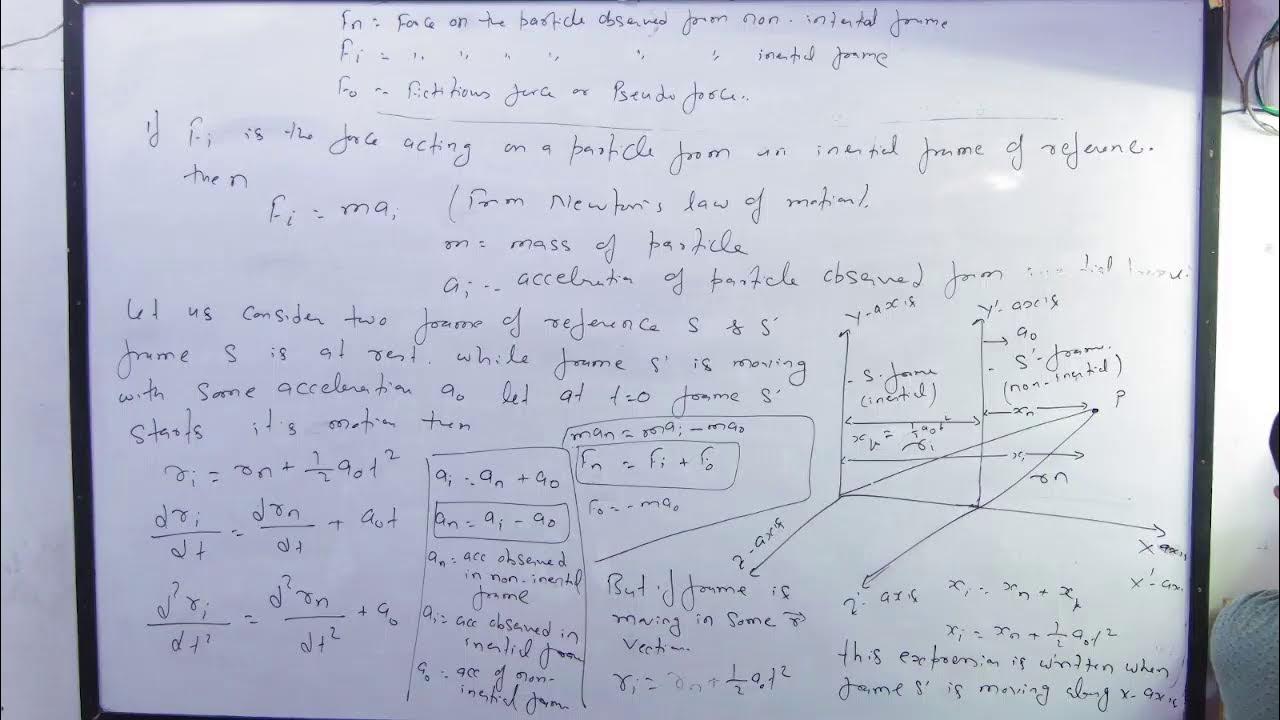 Fn = Force on the particle observed from non-inertial frame
Fi = " " " " " " inertial frame
F0 = Fictitious force or Pseudo force.
If Fi is the force acting on a particle from an inertial frame of reference.
then
Fi = mai (From Newton's law of motion).
m = mass of particle
ai = accelration of particle observed from
Let us consider two frame of reference S & S'
frame S is at rest. while frame S' is moving
with some acceleration a0 let at t=0 frame S'
starts it's motion then
ri = rn + 1/2 a0t²
dri/dt = drn/dt + a0t
d²ri/dt² = d²rn/dt² + a0
ai = an + a0
an = ai - a0
an = acc observed
in non-inertial
frame
ai = acc observed in
inertial frame
a0 = acc of non-
inertial frame
man = mai - ma0
Fn = Fi + F0
F0 = -ma0
But if frame is
moving in some r
Vection
ri = rn + 1/2 a0t²
Y-axis
Y'-axis
a0
S-frame
(inertial)
S'-frame
(non-inertial)
P
xn
= 1/2 a0t²
ri
xi
rn
Z-axis
X-axis
X'-ax
Z'-axis
xi = xn + xr
xi = xn + 1/2 a0t²
this expression is written when
frame S' is moving along x-axis